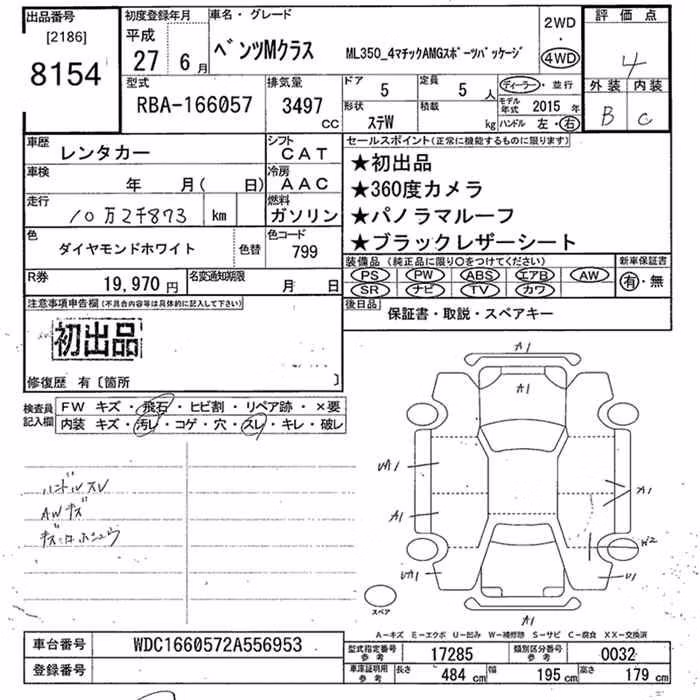 出品番号
[2186]
8154
初度登録年月
平成
27 6月
車名・グレード
ベンツMクラス ML350_4マチックAMGスポーツパッケージ
2WD
・
4WD
評価点
4
外装 内装
B C
型式
RBA-166057
排気量
3497
cc
ドア
5
定員
5 人
ディーラー・並行
形状
ステW
積載
kg
モデル年式 2015 年
ハンドル 左・右
車歴
レンタカー
シフト
CAT
車検
年 月( 日)
冷房
AAC
走行
10万2千873 km
燃料
ガソリン
色
ダイヤモンドホワイト
色替
色コード
799
R券
19,970 円
名変通知期限
月 日
セールスポイント(正常に機能するものに限ります)
★初出品
★360度カメラ
★パノラマルーフ
★ブラックレザーシート
装備品(純正品に限り○をつけてください)
PS PW ABS エアB AW
SR ナビ TV カワ
新車保証書
有・無
後日品
保証書・取説・スペアキー
注意事項申告欄(不具合内容等は具体的に記入して下さい)
初出品
修復歴 有〔箇所 〕
検査員記入欄
FW キズ・飛石・ヒビ割・リペア跡・×要
内装 キズ・汚レ・コゲ・穴・スレ・キレ・破レ
ハンドルスレ
AWキズ
A1
A1
UA1
A1
A1
W2
UA1
U1
A1
スペア
A-キズ E-エクボ U-凹み W-補修跡 S-サビ C-腐食 XX-交換済
車台番号
WDC1660572A556953
登録番号
型式指定番号 参考
17285
類別区分番号 参考
0032
車庫証明用 参考
長さ 484 cm
幅 195 cm
高さ 179 cm